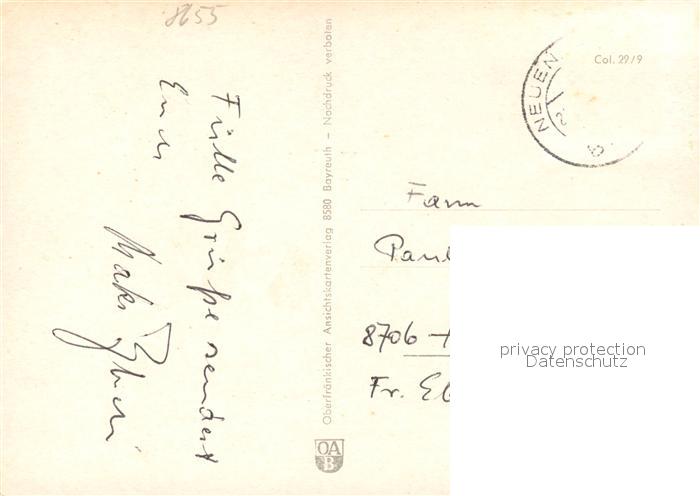 8655
Fülle Grüße sendet
Euch
Oberfränkischer Ansichtskartenverlag 8580 Bayreuth – Nachdruck verboten
OA
B
Col. 29/9
NEUEN
Fam
Paul
8706
Fr. El
privacy protection
Datenschutz